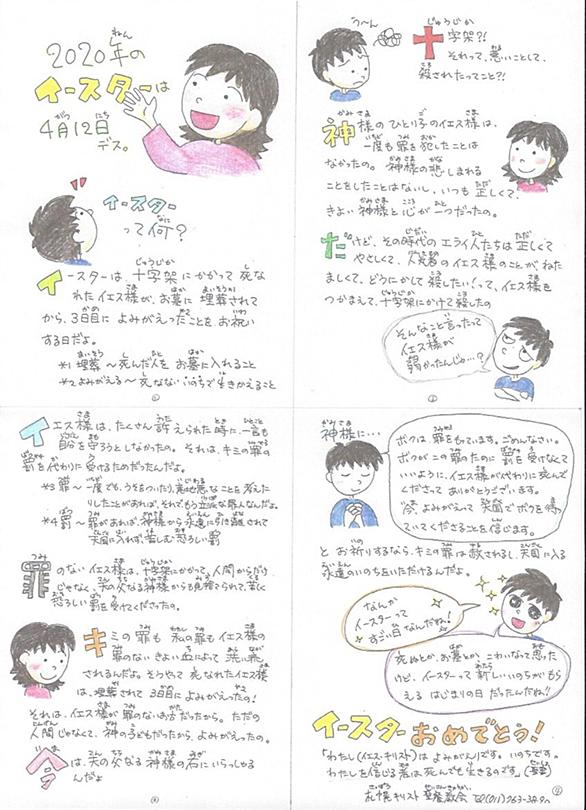 2020年のねん
イースターは
4月12日
がつ にち
デス。
イースター
って何?
なに
イースターは、十字架にかかって死な
れたイエス様が、お墓に埋葬されて
から、3日目によみがえったことをお祝い
する日だよ。
*1 埋葬〜死んだ人をお墓に入れること
*2 よみがえる〜死なないいのちで生きかえること
①
う〜ん
十字架?!
それって、悪いことして、
殺されたってこと?!
神様のひとり子のイエス様は、
一度も罪を犯したことは
なかったの。神様の悲しまれる
ことをしたことはないし、いつも正しくて、
きよい神様と心が一つだったの。
だけど、その時代のエライ人たちは正しくて
やさしくて、人気者のイエス様のことがねた
ましくて、どうにかして殺したい!って、イエス様を
つかまえて、十字架にかけて殺したの
そんなこと言ったって
イエス様が
弱かったんじゃ…?
②
イエス様は、たくさん訴えられた時に、一言も
自分を守ろうとしなかったの。それは、キミの罪の
罰を代わりに受けるためだったんだよ。
*3 罪〜一度でも、うそをついたり、意地悪なことを考えた
りしたことがあれば、それでもう立派な罪人なんだよ。
*4 罰〜罪があれば、神様から永遠に引き離されて
天国に入れず、苦しむ恐ろしい罰
罪のないイエス様は、十字架にかかって、人間からだけ
じゃなくて、天の父なる神様からも見捨てられて、苦しく
恐ろしい罰を受けてくださったの。
キミの罪も私の罪もイエス様の
罪のないきよい血によって洗い流
されるんだよ。そうやって死なれたイエス様
は、埋葬されて3日目によみがえったの!
それは、イエス様が罪のないお方だったから。ただの
人間じゃなくて、神の子どもだったから、よみがえったの。
今は、天の父なる神様の右にいらっしゃる
んだよ
③
神様に…
ボクは、罪をもっています。ごめんなさい。
ボクがこの罪のために罰を受けなくて
いいように、イエス様が代わりに死んで
くださってありがとうございます。
今、よみがえって天国でボクを待っ
ていてくださることを信じます。
とお祈りするなら、キミの罪は赦されるし、天国に入る
永遠のいのちをいただけるんだよ。
なんか
イースターって
すごい日なんだね!
死ぬとか、お墓とか、こわいなって思った
けど、イースターって新しいいのちがもら
えるはじまりの日だったんだね!!
イースターおめでとう!
「わたし(イエス・キリスト)は よみがえりです。いのちです。
わたしを信じる者は死んでも生きるのです。(聖書)
札幌キリスト福音館教会 Tel(011)263-
④